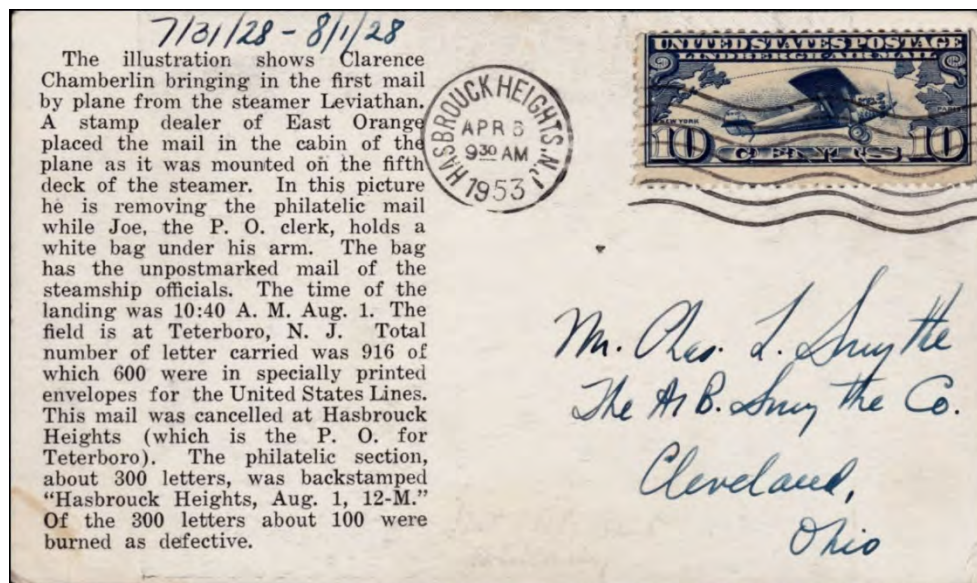 7/31/28 - 8/1/28
The illustration shows Clarence
Chamberlin bringing in the first mail
by plane from the steamer Leviathan.
A stamp dealer of East Orange
placed the mail in the cabin of the
plane as it was mounted on the fifth
deck of the steamer. In this picture
he is removing the philatelic mail
while Joe, the P. O. clerk, holds a
white bag under his arm. The bag
has the unpostmarked mail of the
steamship officials. The time of the
landing was 10:40 A. M. Aug. 1. The
field is at Teterboro, N. J. Total
number of letter carried was 916 of
which 600 were in specially printed
envelopes for the United States Lines.
This mail was cancelled at Hasbrouck
Heights (which is the P. O. for
Teterboro). The philatelic section,
about 300 letters, was backstamped
“Hasbrouck Heights, Aug. 1, 12-M.”
Of the 300 letters about 100 were
burned as defective.
HASBROUCK HEIGHTS, N.J.
APR 6
930 AM
1953
UNITED STATES POSTAGE
LINDBERGH AIR MAIL
NEW YORK
PARIS
10 CENTS 10
Mr. Chas. L. Smythe
The A. B. Smythe Co.
Cleveland,
Ohio